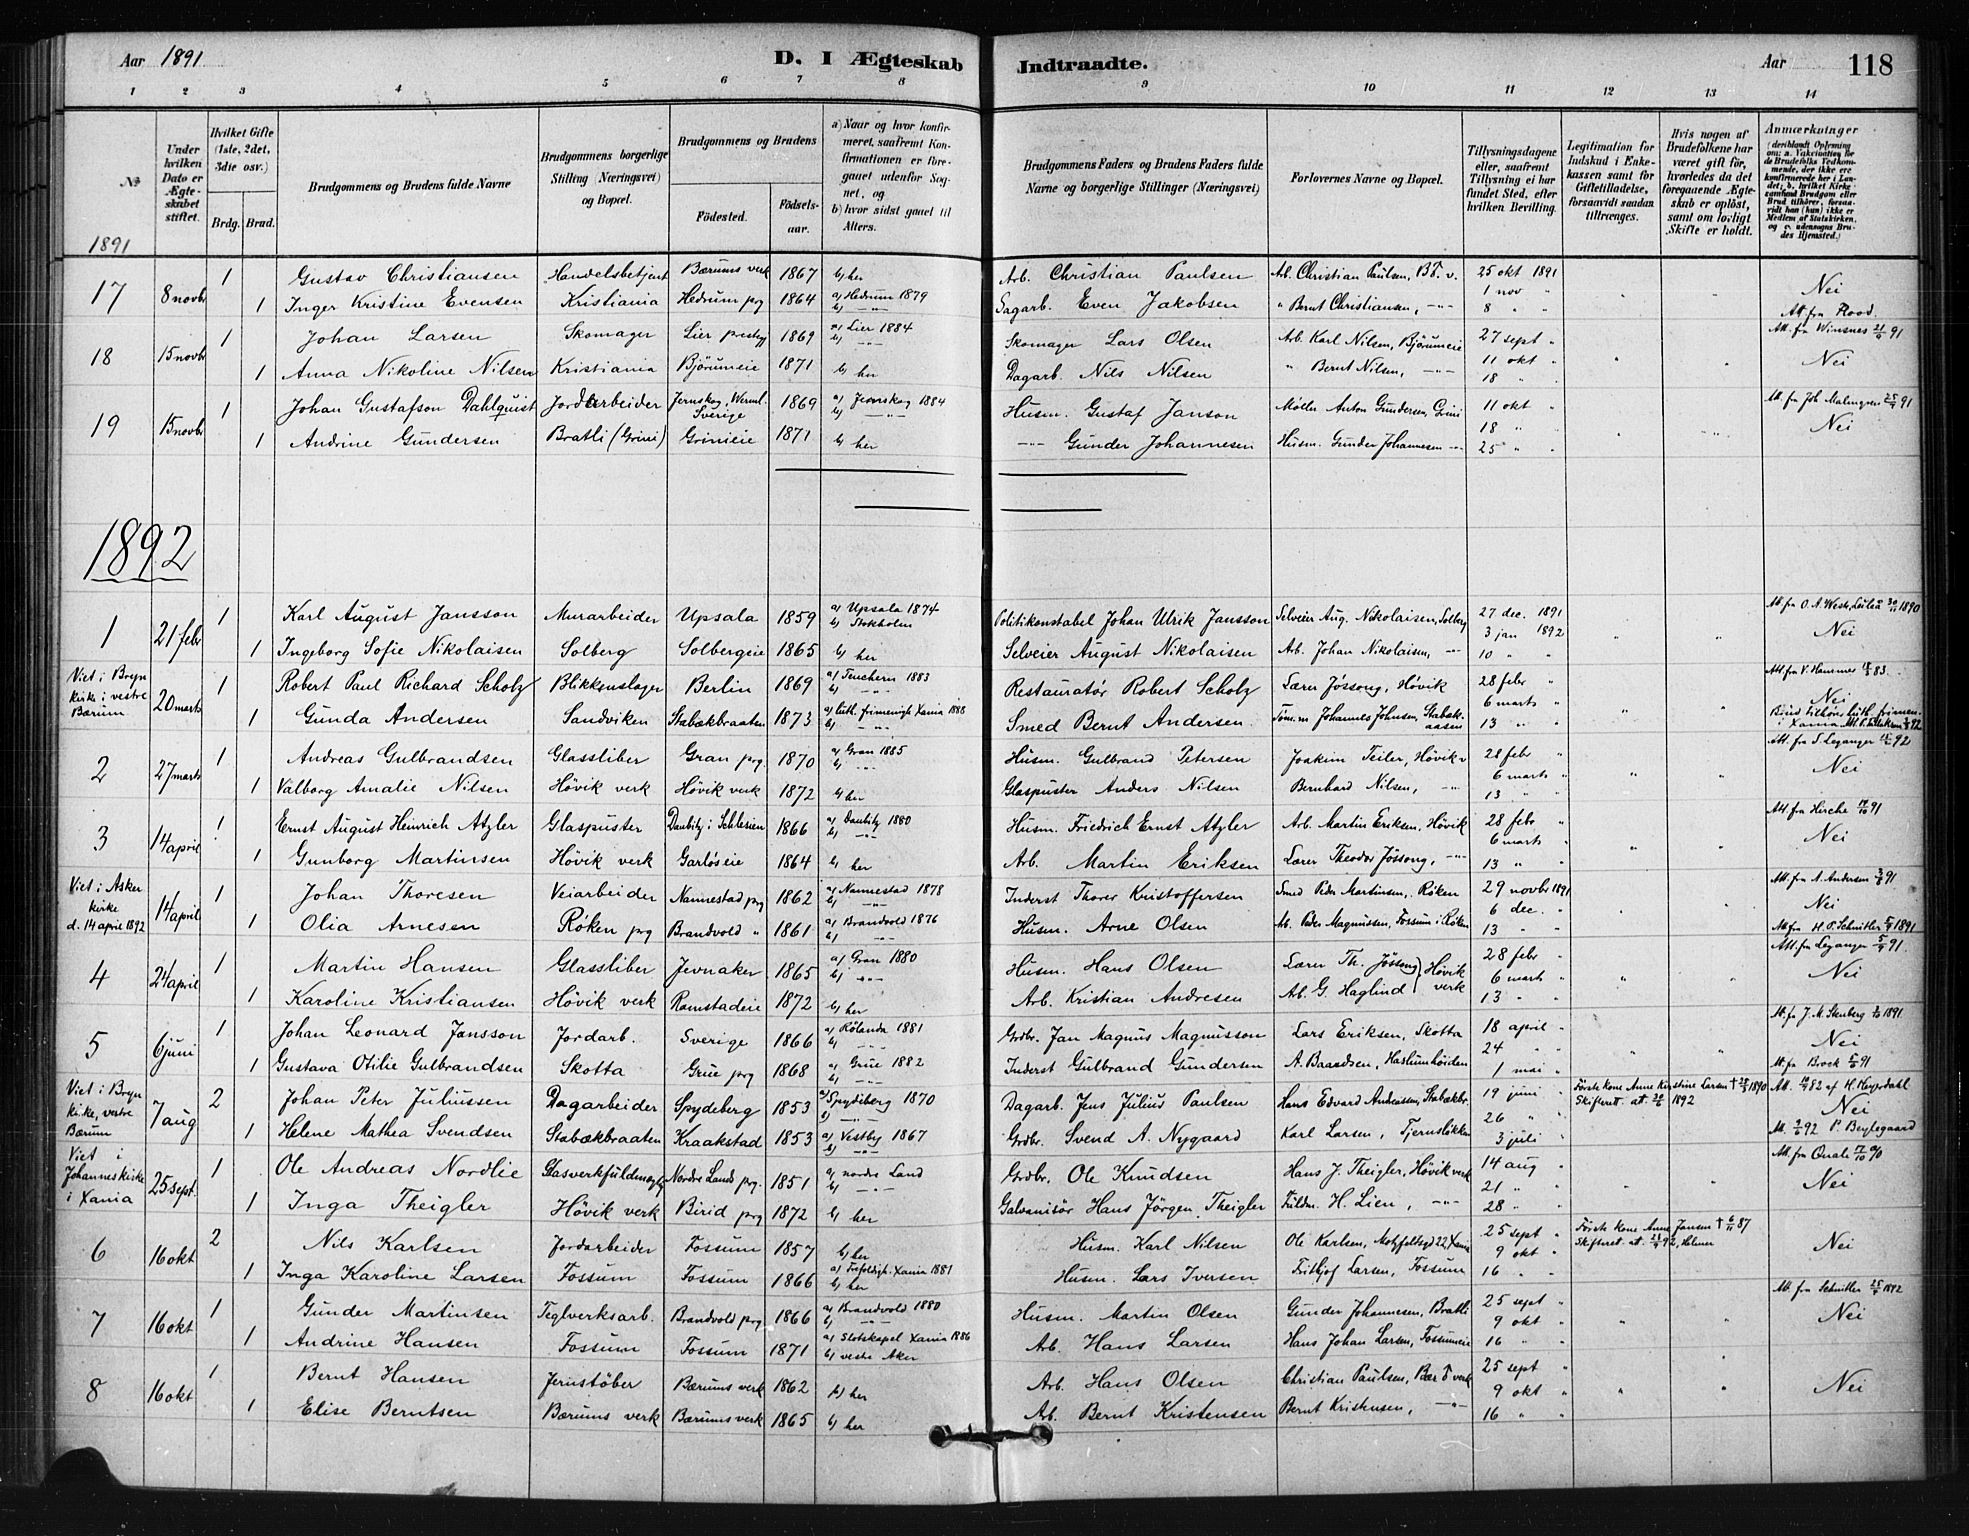 Aar 1891
D. I Ægteskab Indtraadte.
Aar 118
1 2 3 4 5 6 7 8 9 10 11 12 13 14
№
1891
Under hvilken Dato er Ægteskabet stiftet.
Hvilket Gifte (1ste, 2det, 3die osv.)
Brdg. Brud.
Brudgommens og Brudens fulde Navne
Brudgommens borgerlige Stilling (Næringsvei) og Bopæl.
Brudgommens og Brudens
Födested.
Födsels-aar.
a) Naar og hvor konfirmeret, saafremt Konfirmationen er foregaaet udenfor Sognet, og
b) hvor sidst gaaet til Alters.
Brudgommens Faders og Brudens Faders fulde Navne og borgerlige Stillinger (Næringsvei)
Forlovernes Navne og Bopæl.
Tillysningsdagene eller, saafremt Tillysning ei har fundet Sted, efter hvilken Bevilling.
Legitimation for Indskud i Enkekassen samt for Giftetilladelse, forsaavidt saadan tiltrænges.
Hvis nogen af Brudefolkene har været gift för, hvorledes da det foregaaende Ægteskab er oplöst, samt om lovligt Skifte er holdt.
Anmærkninger (deriblandt Oplysning om: a. Vakcination for de Brudefolks Vedkommende, der ikke ere konfirmerede her i Landet; b. hvilket Kirkesamfund Brudgom eller Brud tilhörer, forsaavidt han (hun) ikke er Medlem af Statskirken, og c. udensogns Brudes Hjemsted.)
17 8 novbr 1 Gustav Christiansen Handelsbetjent Bærums verk 1867 b) her Arb. Christian Paulsen Arb. Christian Paulsen, B.V. v. 25 okt 1891
1 nov " " " Nei
1 Inger Kristine Evensen Kristiania Hedrum prg 1864 a) Hedrum 1879 b) —"— Sagarb. Even Jakobsen " Bernt Christiansen, —"— 8 " " Att. fra Flood.
18 15 novbr 1 Johan Larsen Skomager Lier prestegj 1869 a) Lier 1884 b) —"— Skomager Lars Olsen Arb. Karl Nilsen, Björumeie 27 sept " Att. fra Winsnes 21/9 91
11 okt " " " Nei
1 Anna Nikoline Nilsen Kristiania Björumeie 1871 b) her Dagarb. Nils Nilsen " Bernt Nilsen, —"— 18 " "
19 15 novbr 1 Johan Gustafson Dahlquist Jordarbeider Jernskog, Werml. Sverige 1869 a) Jernskog 1884 b) —"— Husm. Gustaf Janson Möller Anton Gundersen, Grini 11 okt " Att. fra Joh. Malmgren 25/9 91
18 " " " " Nei
1 Andrine Gundersen Bratli (Grini) Grinieie 1871 b) her —"— Gunder Johannesen Husm. Gunder Johannesen —"— 25 " "
1892
1 21 febr 1 Karl August Jansson Murarbeider Upsala 1859 a) Upsala 1874 b) Stokholm Politikonstabel Johan Ulrik Jansson Selveier Aug. Nikolaisen, Solberg 27 dec. 1891
3 jan 1892 " " Nei
1 Ingeborg Sofie Nikolaisen Solberg Solbergeie 1865 b) her Selveier August Nikolaisen Arb. Johan Nikolaisen, —"— 10 " "
Viet i Bryn kirke i vestre Bærum 20 marts 1 Robert Paul Richard Scholz Blikkenslager Berlin 1869 a) Teuchern 1883 b) —"— Restauratör Robert Scholz Lærer Jössong, Hövik 28 febr " Att. fra V. Hammer
6 marts " " " Nei
1 Gunda Andersen Sandviken Stabækbraaten 1873 a) luth. frimenigh. Xania 1888 b) —"— Smed Bernt Andersen Tömm. Johannes Johnsen, Stabækaasen 13 " " Brud tilhörer luth. frimen. i Xania
2 27 marts 1 Andreas Gulbrandsen Glassliber Gran prg. 1870 a) Gran 1885 b) —"— Husm. Gulbrand Petersen Joakim Teiler, Hövik v 28 febr " Att. fra S. Leganger
6 marts " " " Nei
1 Valborg Amalie Nilsen Hövik verk Hövik verk 1872 b) her Glaspuster Anders Nilsen Bernhard Nilsen, —"— 13 " "
3 14 april 1 Ernst August Heinrich Atzler Glaspuster Daubitz i Schlesien 1866 a) Daubitz 1880 b) —"— Husm. Friedrich Ernst Atzler Arb. Martin Eriksen, Hövik 28 febr " Att. fra Hirche
6 marts " " " Nei
1 Gunborg Martinsen Hövik verk Garlöseie 1864 b) her Arb. Martin Eriksen Lærer Theodor Jössong, —"— 13 " "
Viet i Asker kirke d. 14 april 1892 14 april 1 Johan Thoresen Veiarbeider Nannestad prg 1862 a) Nannestad 1878 b) —"— Inderst Thorer Kristoffersen Smed Peder Martinsen, Röken 29 novbr 1891 Att. fra A. Andersen
6 dec. " " " Nei
1 Olia Arnesen Röken prg Brandvold " 1861 a) Brandvold 1876 b) —"— Husm. Arne Olsen Arb. Peder Magnussen, Fossum i Röken 13 " " Att fra H. P. Schnitler
4 24 april 1 Martin Hansen Glassliber Jevnaker 1865 a) Gran 1880 b) —"— Husm. Hans Olsen Lærer Th. Jössong 28 febr " Att. fra Leganger 5/9 91.
Hövik verk 6 marts " " " Nei
1 Karoline Kristiansen Hövik verk Ramstadeie 1872 b) her Arb. Kristian Andresen Arb. G. Haglind 13 " "
5 6 juni 1 Johan Leonard Jansson Jordarb. Sverige 1866 a) Rölanda 1881 b) —"— Grdbr. Jan Magnus Magnusson Lars Eriksen, Skotta 18 april "
24 " " " " Nei
1 Gustava Otilie Gulbrandsen Skotta Grue prg 1868 a) Grue 1882 b) —"— Inderst Gulbrand Gundersen A. Baardsen, Haslumhöiden 1 mai " Att. fra Brock
Viet i Bryn kirke, vestre Bærum 7 aug 2 Johan Peter Juliussen Dagarbeider Spydeberg 1853 a) Spydeberg 1870 b) —"— Dagarb. Jens Julius Paulsen Hans Edvard Andreassen, Stabækbr. 19 juni " Förste kone Anne Kirstine Larsen † 1890 Skifteret. att. 1892 Att. af H. Heyerdahl
26 " " Nei
1 Helene Mathea Svendsen Stabækbraaten Kraakstad 1853 a) Vestby 1867 b) —"— Grdbr. Svend A. Nygaard Karl Larsen, Tjernslökken 3 juli "
Viet i Johanneskirke i Xania 25 sept. 1 Ole Andreas Nordlie Glasverkfuldmægtig Nordre Land prg. 1851 a) nordre Land b) —"— Grdbr. Ole Knudsen Hans J. Theigler, Hövik verk 14 aug " Att. fra Qvale
21 " " " " Nei
1 Inga Theigler Hövik verk Birid prg 1872 b) her Galvanisör Hans Jörgen Theigler Fuldm. H. Lien, —"— 28 " "
6 16 okt 2 Nils Karlsen Jordarbeider Fossum 1857 b) her Husm. Karl Nilsen Ole Karlsen, Motzfeldtsgd 22, Xania 25 sept " Förste kone Anne Jansen † 6/11 87 Skifteret. att.
9 okt " Nei
1 Inga Karoline Larsen Fossum Fossum 1866 a) Trefoldigh. Xania 1881 b) her Husm. Lars Iversen Frithjof Larsen, Fossum 16 " "
7 16 okt 1 Gunder Martinsen Teglverksarb. Brandvold prg 1866 a) Brandvold 1880 b) —"— Husm. Martin Olsen Gunder Johannesen, Bratli 25 sept " Att. fra Schnitler
9 okt " " " Nei
1 Andrine Hansen Fossum Fossum 1871 a) Slotskapel Xania 1886 b) vestre Aker Arb. Hans Larsen Hans Johan Larsen, Fossumeie 16 " "
8 16 okt 1 Bernt Hansen Jernstöber Bærums verk 1862 b) her Arb. Hans Olsen Christian Paulsen, Bær V verk 25 sept "
9 okt " " " Nei
1 Elise Berntsen Bærums verk Bærums verk 1865 b) her Arb. Bernt Kristensen Bernt Kristensen, —"— 16 " "